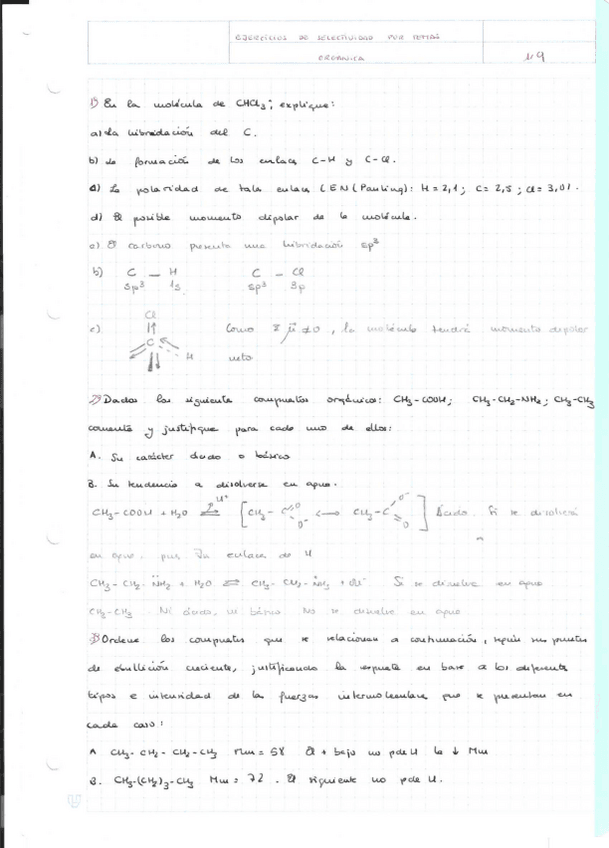 EJERCICIOS DE SELECTIVIDAD POR TEMAS
ORGÁNICA
1) En la molécula de CHCl3, explique:
a) La hibridación del C.
b) La formación de los enlaces C-H y C-Cl.
c) La polaridad de tales enlaces (EN(Pauling): H=2,1; C=2,5; Cl=3,0).
d) El posible momento dipolar de la molécula.
a) El carbono presenta una hibridación sp3
b) C — H C — Cl
sp3 1s sp3 3p
c) Cl
C
H
Como Σ μ ≠ 0, la molécula tendrá momento dipolar
neto
2) Dados los siguiente compuestos orgánicos: CH3-COOH; CH3-CH2-NH2; CH3-CH3
comente y justifique para cada uno de ellos:
A. Su carácter ácido o básico
B. Su tendencia a disolverse en agua.
CH3-COOH + H2O ⇌ [CH3-C O O- ↔ CH3-C O- O] Ácido. Si se disolverá
en agua, pues enlaces de H
CH3-CH2-NH2 + H2O ⇌ CH3-CH2-NH3 + OH- Si se disuelve en agua
CH3-CH3 Ni ácido, ni básico No se disuelve en agua
3) Ordene los compuestos que se relacionan a continuación, según sus puntos
de ebullición creciente, justificando la respuesta en base a los diferentes
tipos e intensidad de las fuerzas intermoleculares que se presentan en
cada caso:
A. CH3-CH2-CH2-CH3 Mm = 58 El + bajo no pde H la ↓ Mm
B. CH3-(CH2)3-CH3 Mm = 72. El siguiente no pde H.